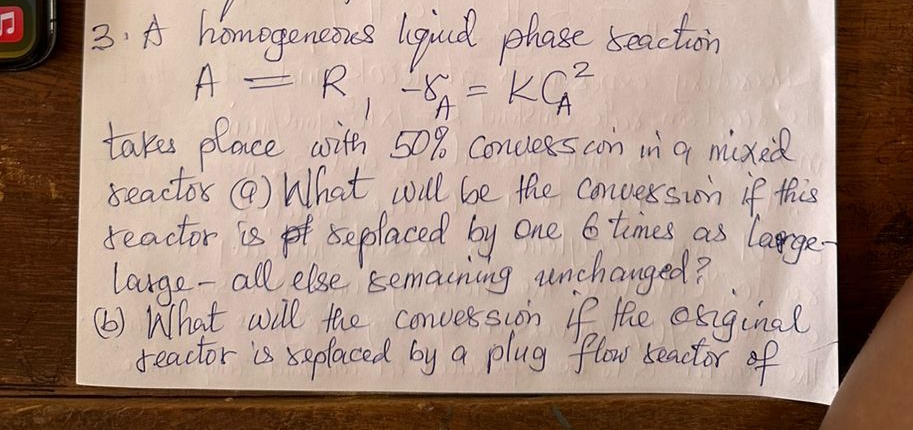 3. A homogeneous liquid phase reaction
A = R, -r_A = KC_A^2
takes place with 50% conversion in a mixed
reactor (a) What will be the conversion if this
reactor is replaced by one 6 times as large-
large - all else remaining unchanged?
(b) What will the conversion if the original
reactor is replaced by a plug flow reactor of